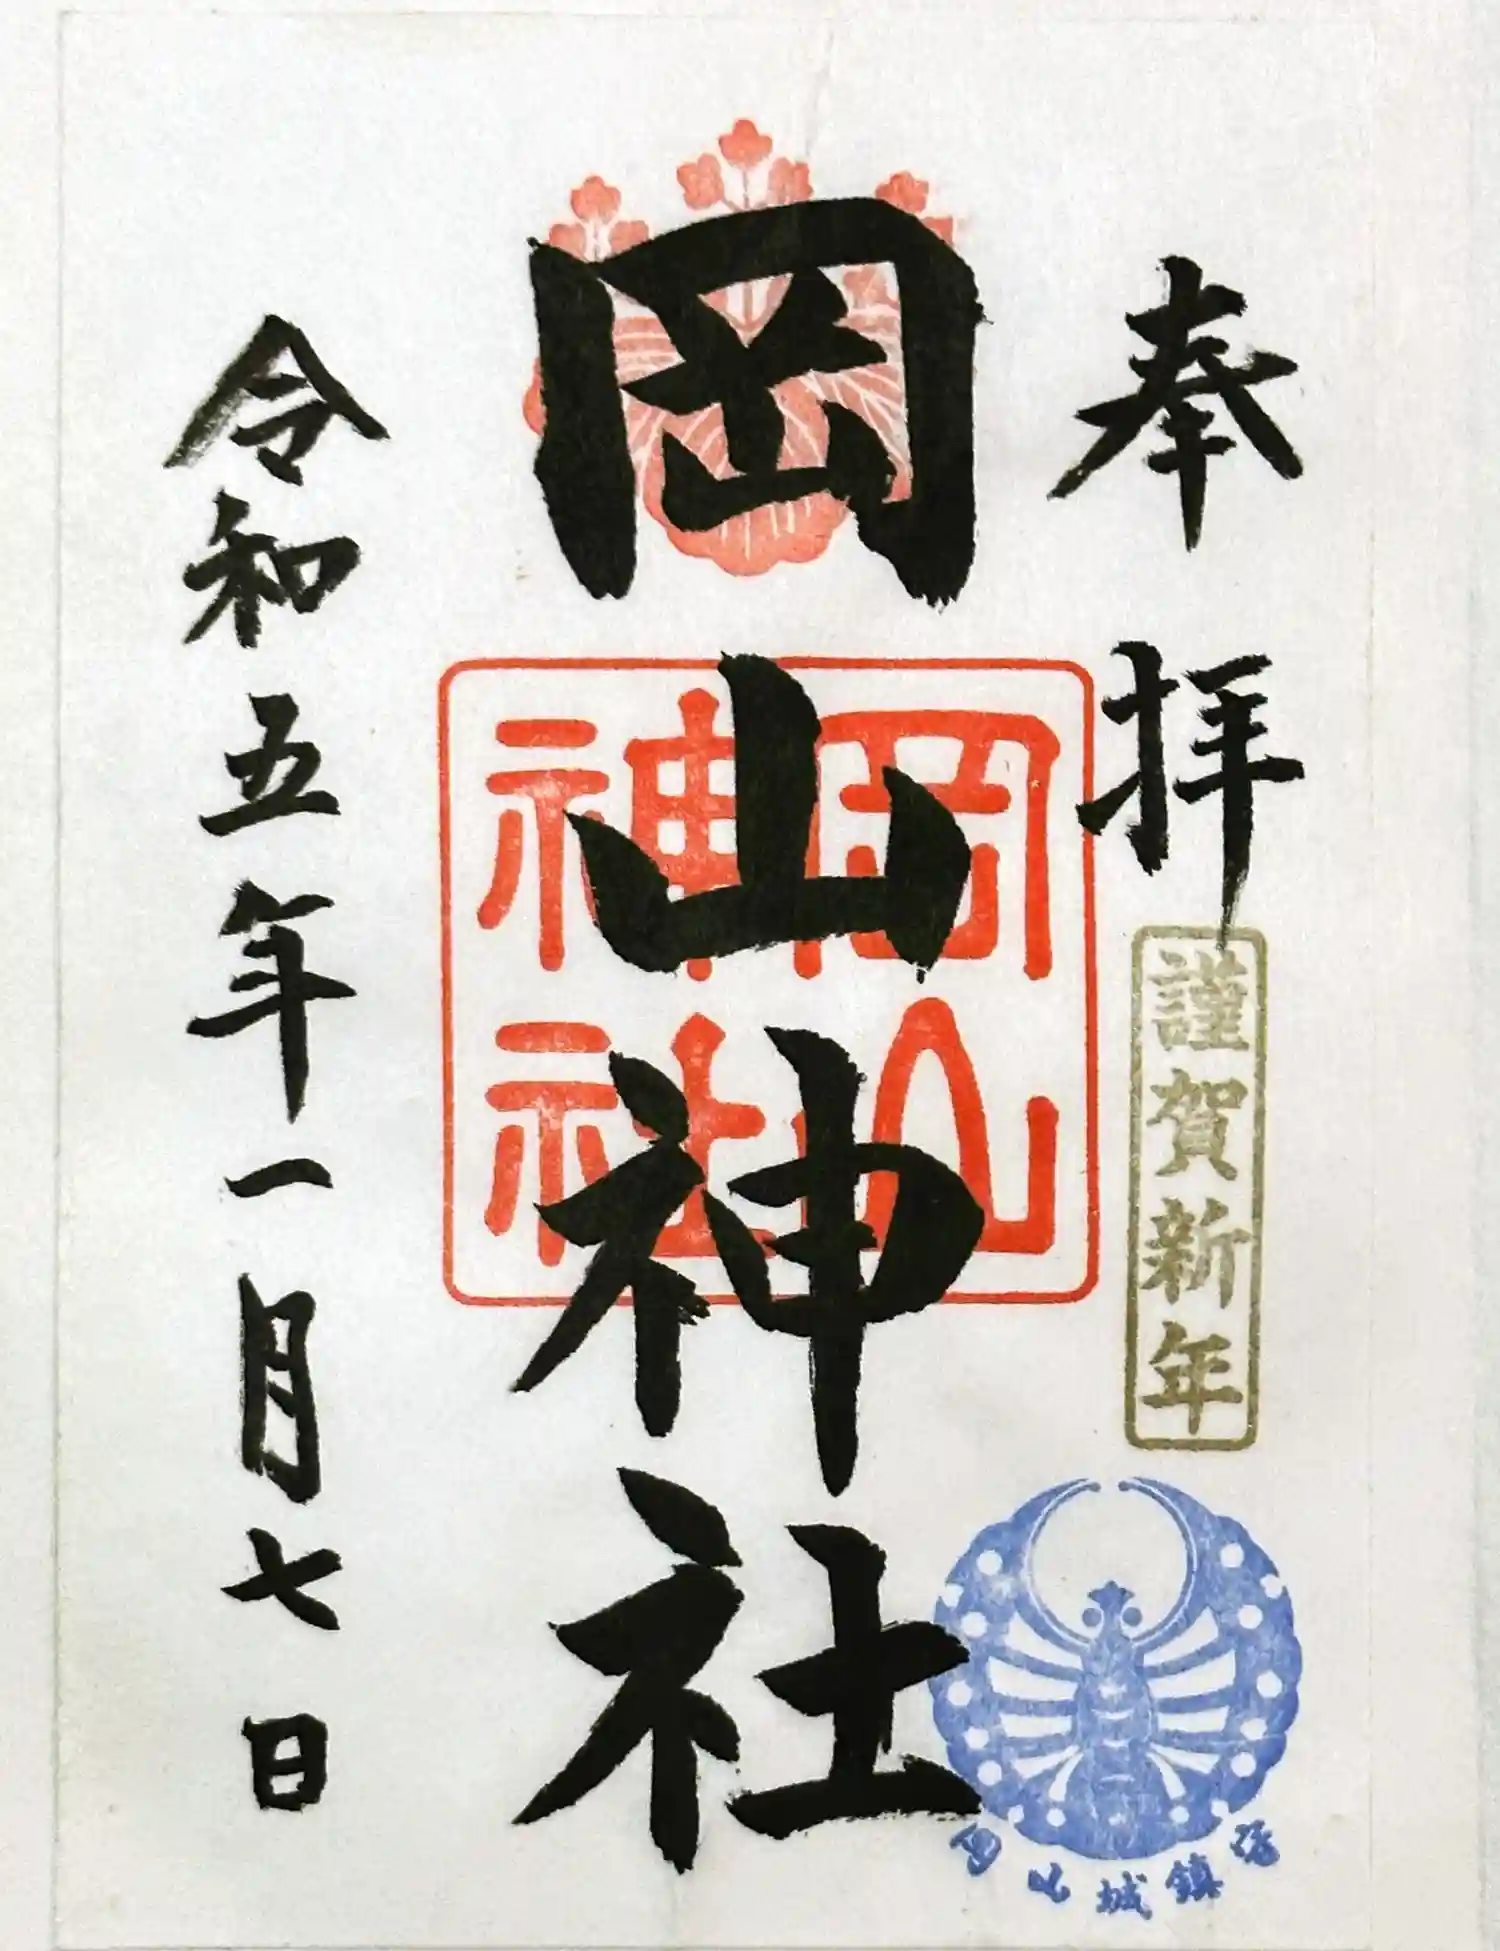 奉拝
謹賀新年
岡山城鎮守
岡山神社
岡山
神社
令和五年一月七日